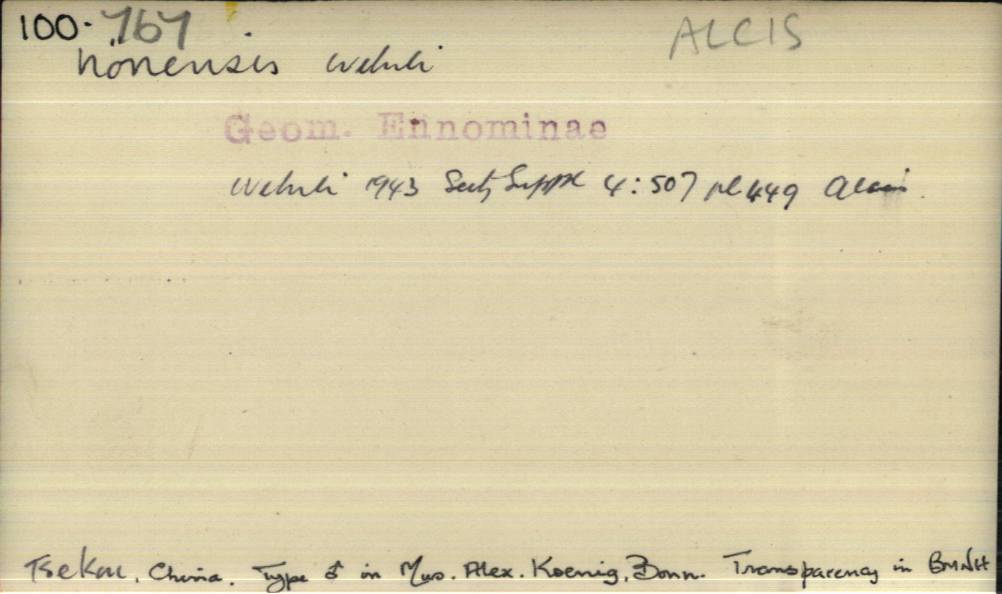 100.767 ALCIS
hönensis Wehrli
Geom. Ennominae
Wehrli 1943 Seitz Suppl 4:507 pl 449 Alcis.
Tsekou, China. Type ♂ in Mus. Alex. Koenig, Bonn. Transparency in BMNH